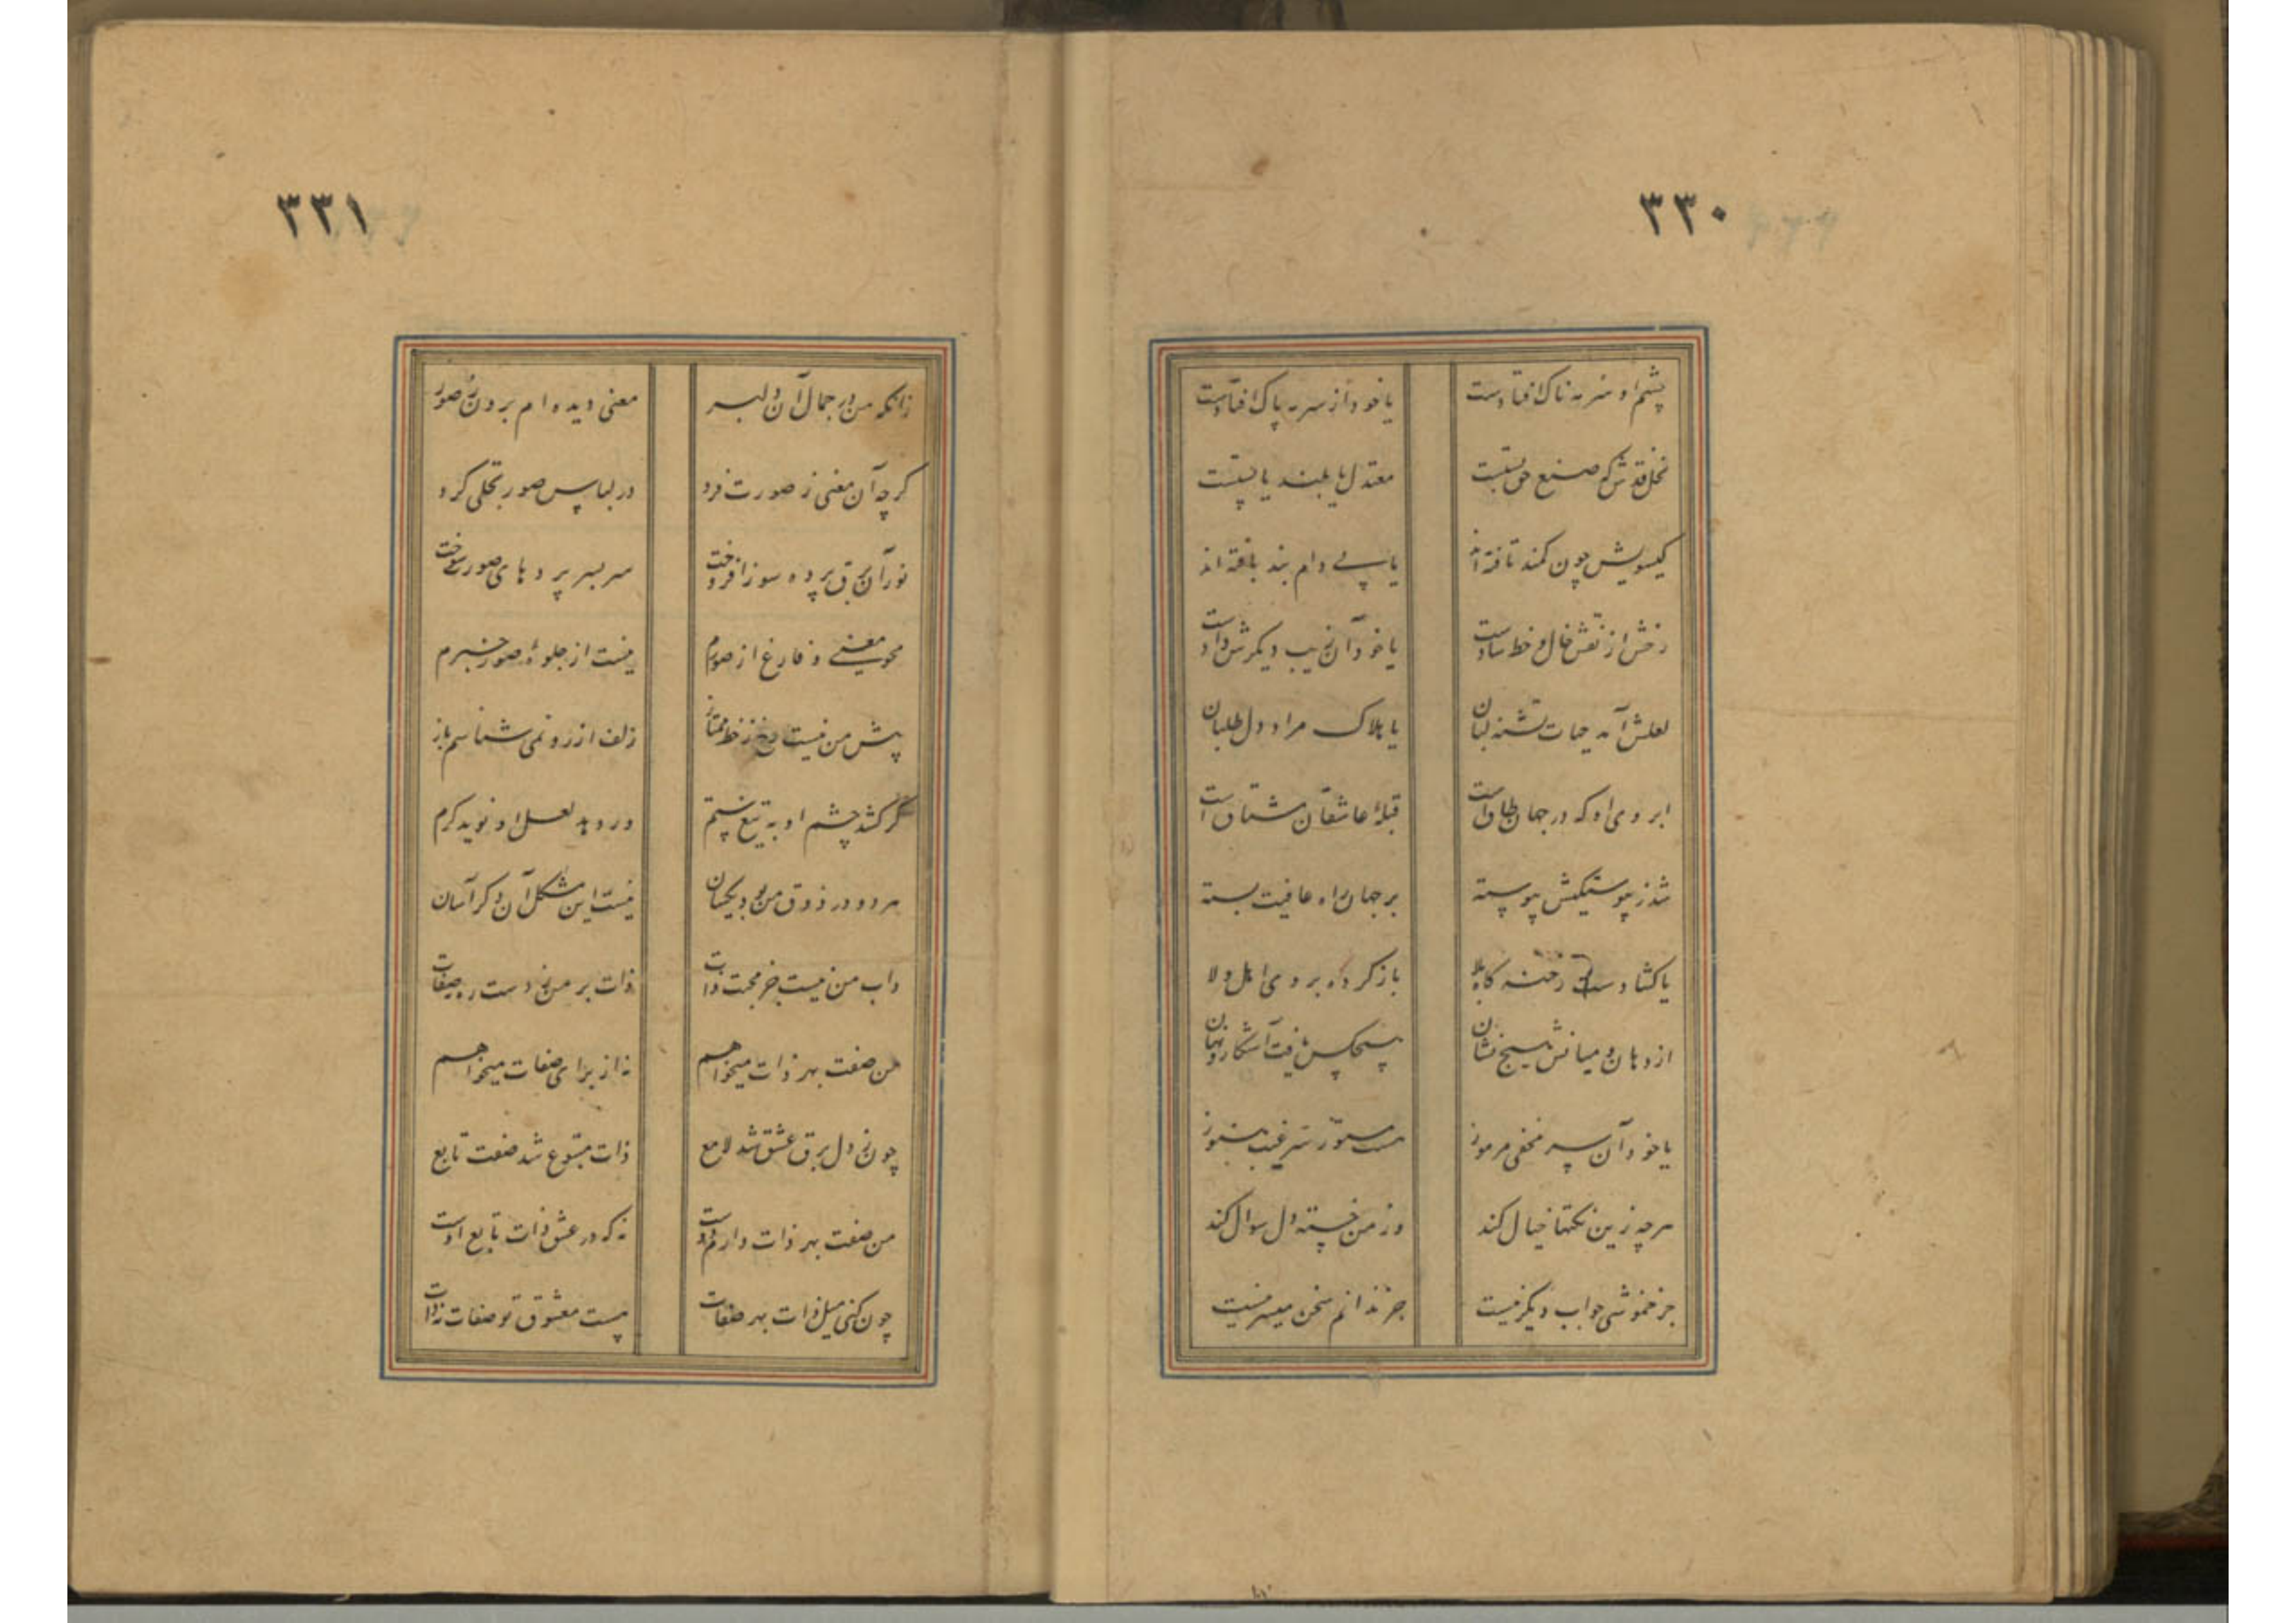 ۳۳۰
چشم او سرمه ناک افتادست یا خود از سرمه پاک افتادست
نخل قدش که صنع حق بستست معتدل یا بلند یا پستست
گیسویش چون کمند تافته‌اند یا پی دام بند بافته‌اند
رخش از نقش خال و خط سادست یا خود آن زیب دیگرش دادست
لعلش آمد حیات تشنه لبان یا هلاک مراد دل طلبان
ابروی او که در جهان طاق است قبلهٔ عاشقان مشتاق است
شد ز پیوستگیش پیوسته بر جهان راه عافیت بسته
یا گشادست رخنه گاه بلا باز کرده بروی اهل ولا
از دهان و میانش هیچ نشان هیچکس یافت آشکار و نهان
یا خود آن سر مخفی مرموز هست مستور ستر غیب هنوز
هرچه زین نکتها خیال کند وز من خسته دل سوال کند
جز خموشی جواب دیگر نیست جز ندانم سخن میسر نیست
۳۳۱
زانکه من در جمال آن دلبر معنی دیده‌ام برون ز صور
گرچه آن معنی ز صورت فرد در لباس صور تجلی کرد
نور آن برق پرده سوز افروخت سر بسر پردهای صور سوخت
محو معنی و فارغ از صورم نیست از جلوهٔ صور خبرم
پیش من نیست رخ ز خط ممتاز زلف از رو نمی شناسم باز
گر کشد چشم او به تیغ ستم ور دهد لعل او نوید کرم
هر دو در ذوق من بود یکسان نیست این مشکل آن دگر آسان
داب من نیست جز محبت ذات ذات بر من نزدست ره صفات
من صفت بهر ذات میخواهم نه از برای صفات میخواهم
چون ز دل برق عشق شد لامع ذات متبوع شد صفت تابع
من صفت بهر ذات دارم دوست نه که در عشق ذات تابع اوست
چون کنی میل ذات بهر صفات هست معشوق تو صفات نه ذات